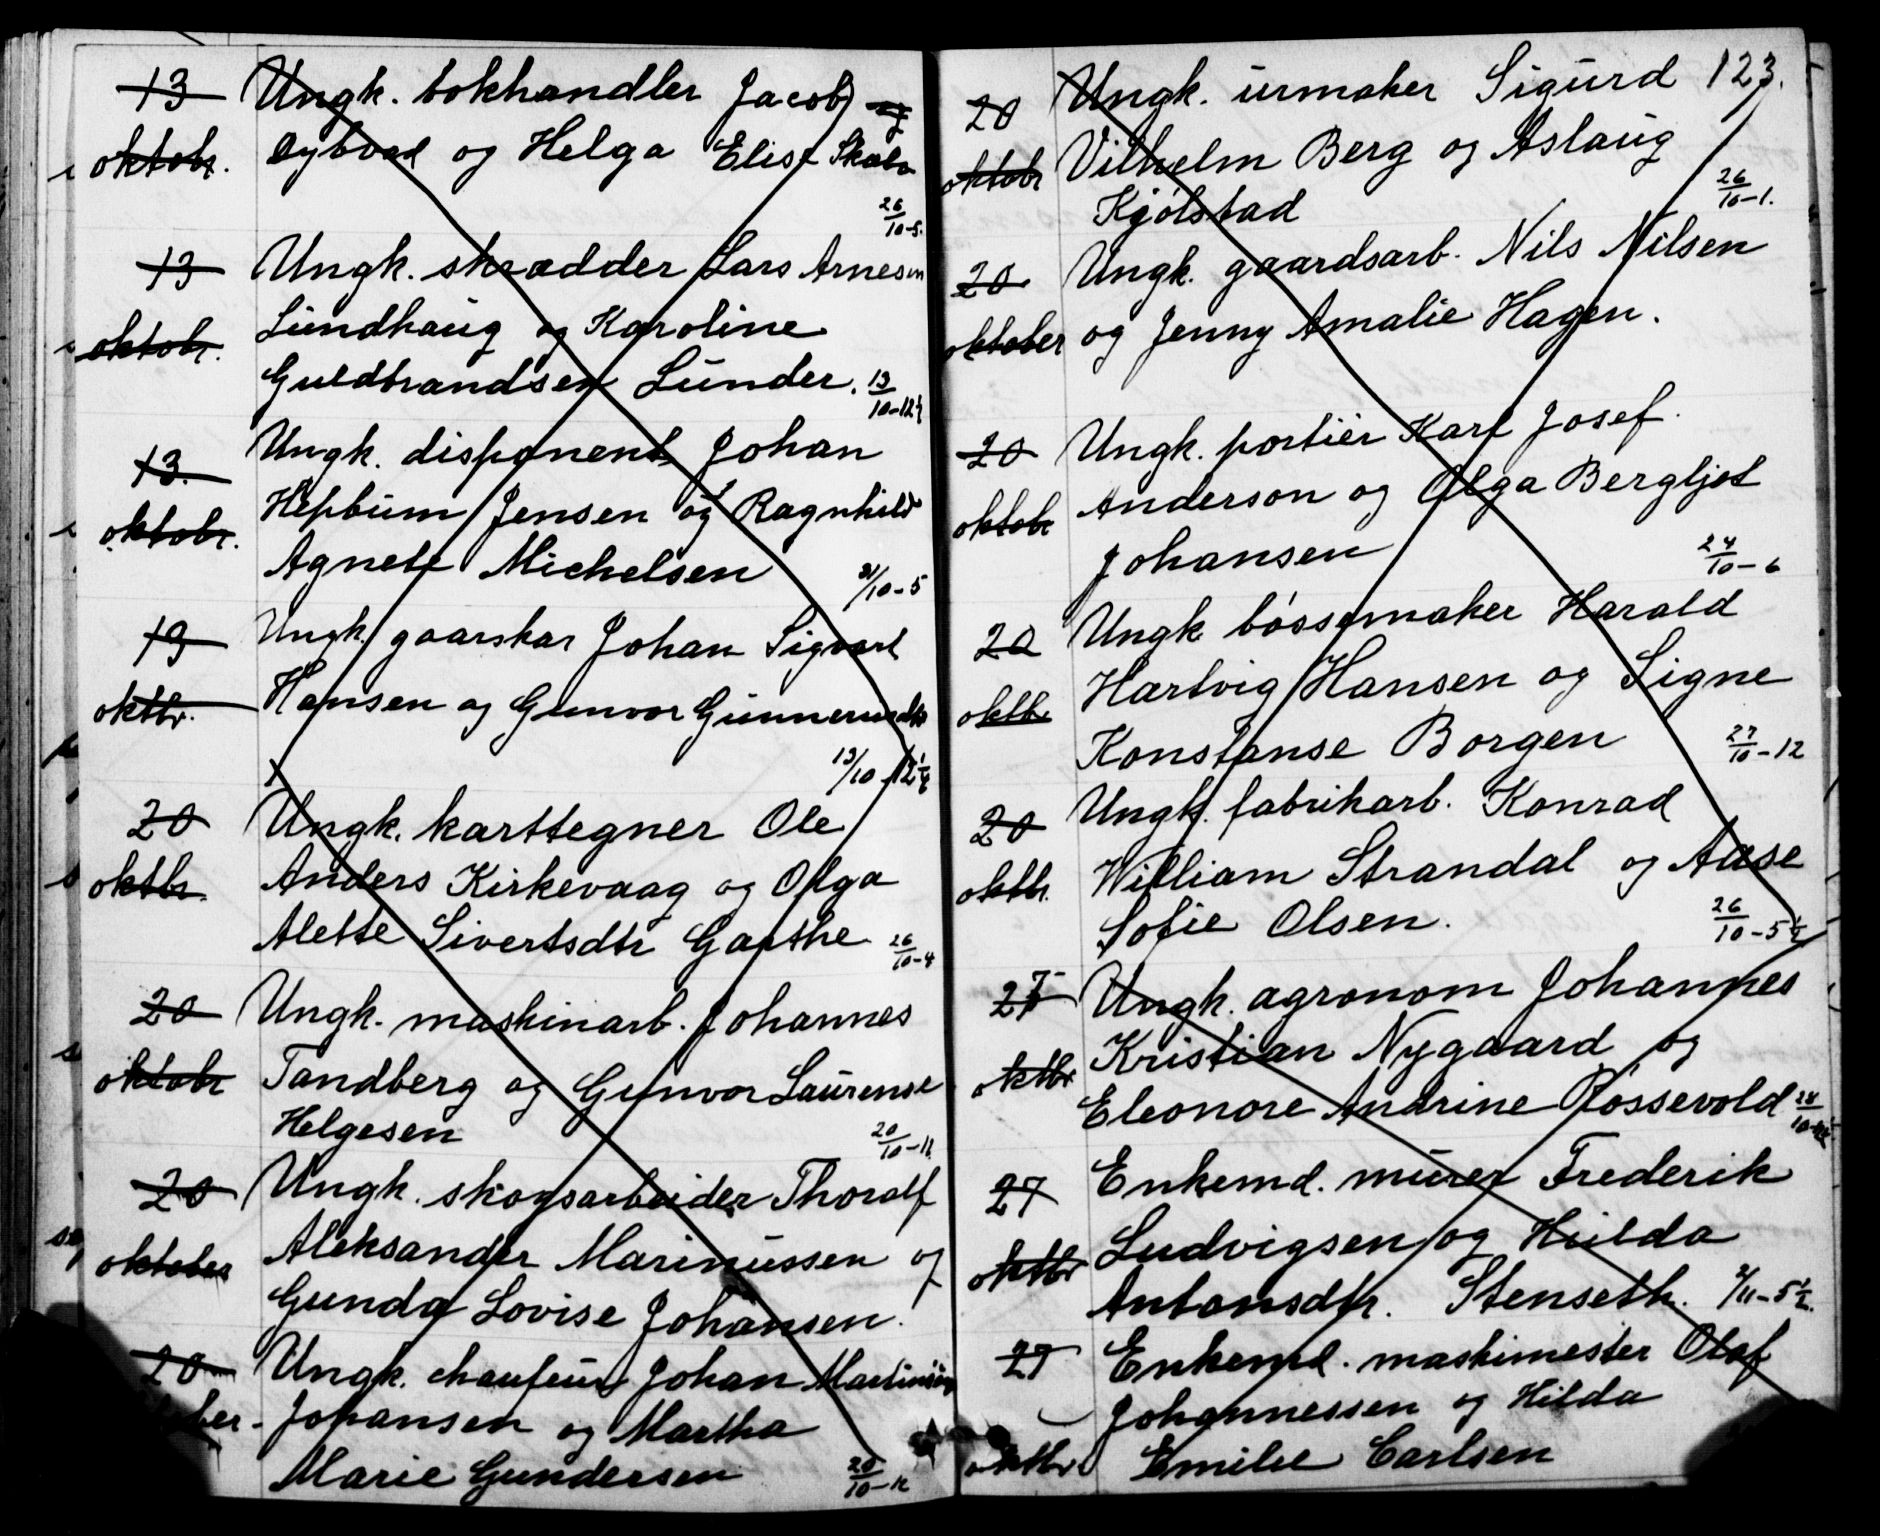 13 Ungk. bokhandler Jacob
oktobr. Dybvad og Helga Elise
26/10-5.
13 Ungk. skrædder Lars Arnesen
oktobr. Lundhaug og Karoline
Guldbrandsen Lunder. 13/10-12½
13. Ungk. disponent Johan
oktobr. Hepburn Jensen og Ragnhild
Agnete Michelsen 21/10-5
13 Ungk. gaarskar Johan Sigvart
oktbr. Hansen og Gunvor
13/10-12½
20 Ungk. karttegner Ole
oktbr. Anders Kirkevaag og Olga
Alette Sivertsdtr Garthe 26/10-4
20 Ungk. maskinarb. Johannes
oktobr Tandberg og Gunvor Laurense
Helgesen 20/10-11.
20 Ungk. skogsarbeider Thoralf
oktober Aleksander Marinussen og
Gunda Lovise Johansen.
20 Ungk. chaufeur Johan
Johansen og Martha
Marie Gundersen 20/10-12
123.
20 Ungk. urmaker Sigurd
oktobr Vilhelm Berg og Aslaug
Kjölstad 26/10-1.
20. Ungk. gaardsarb. Nils Nilsen
oktober og Jenny Amalie Hagen.
20 Ungk. portier Karl Josef
oktobr Anderson og Olga Bergljot
Johansen 24/10-6
20 Ungk bössemaker Harald
oktbr Hartvig Hansen og Signe
Konstanse Borgen 27/10-12
20 Ungk. fabrikarb. Konrad
oktbr. William Strandal og Aase
Sofie Olsen. 26/10-5½
27 Ungk. agronom Johannes
oktbr Kristian Nygaard og
Eleonore Andrine Rössevold
27 Enkemd. murer Frederik
oktbr Ludvigsen og Hulda
Antonsdtr. Stenseth. 2/11-5½.
27 Enkemd. maskinmester Olaf
Johannessen og Hilda
oktbr Emilie Carlsen